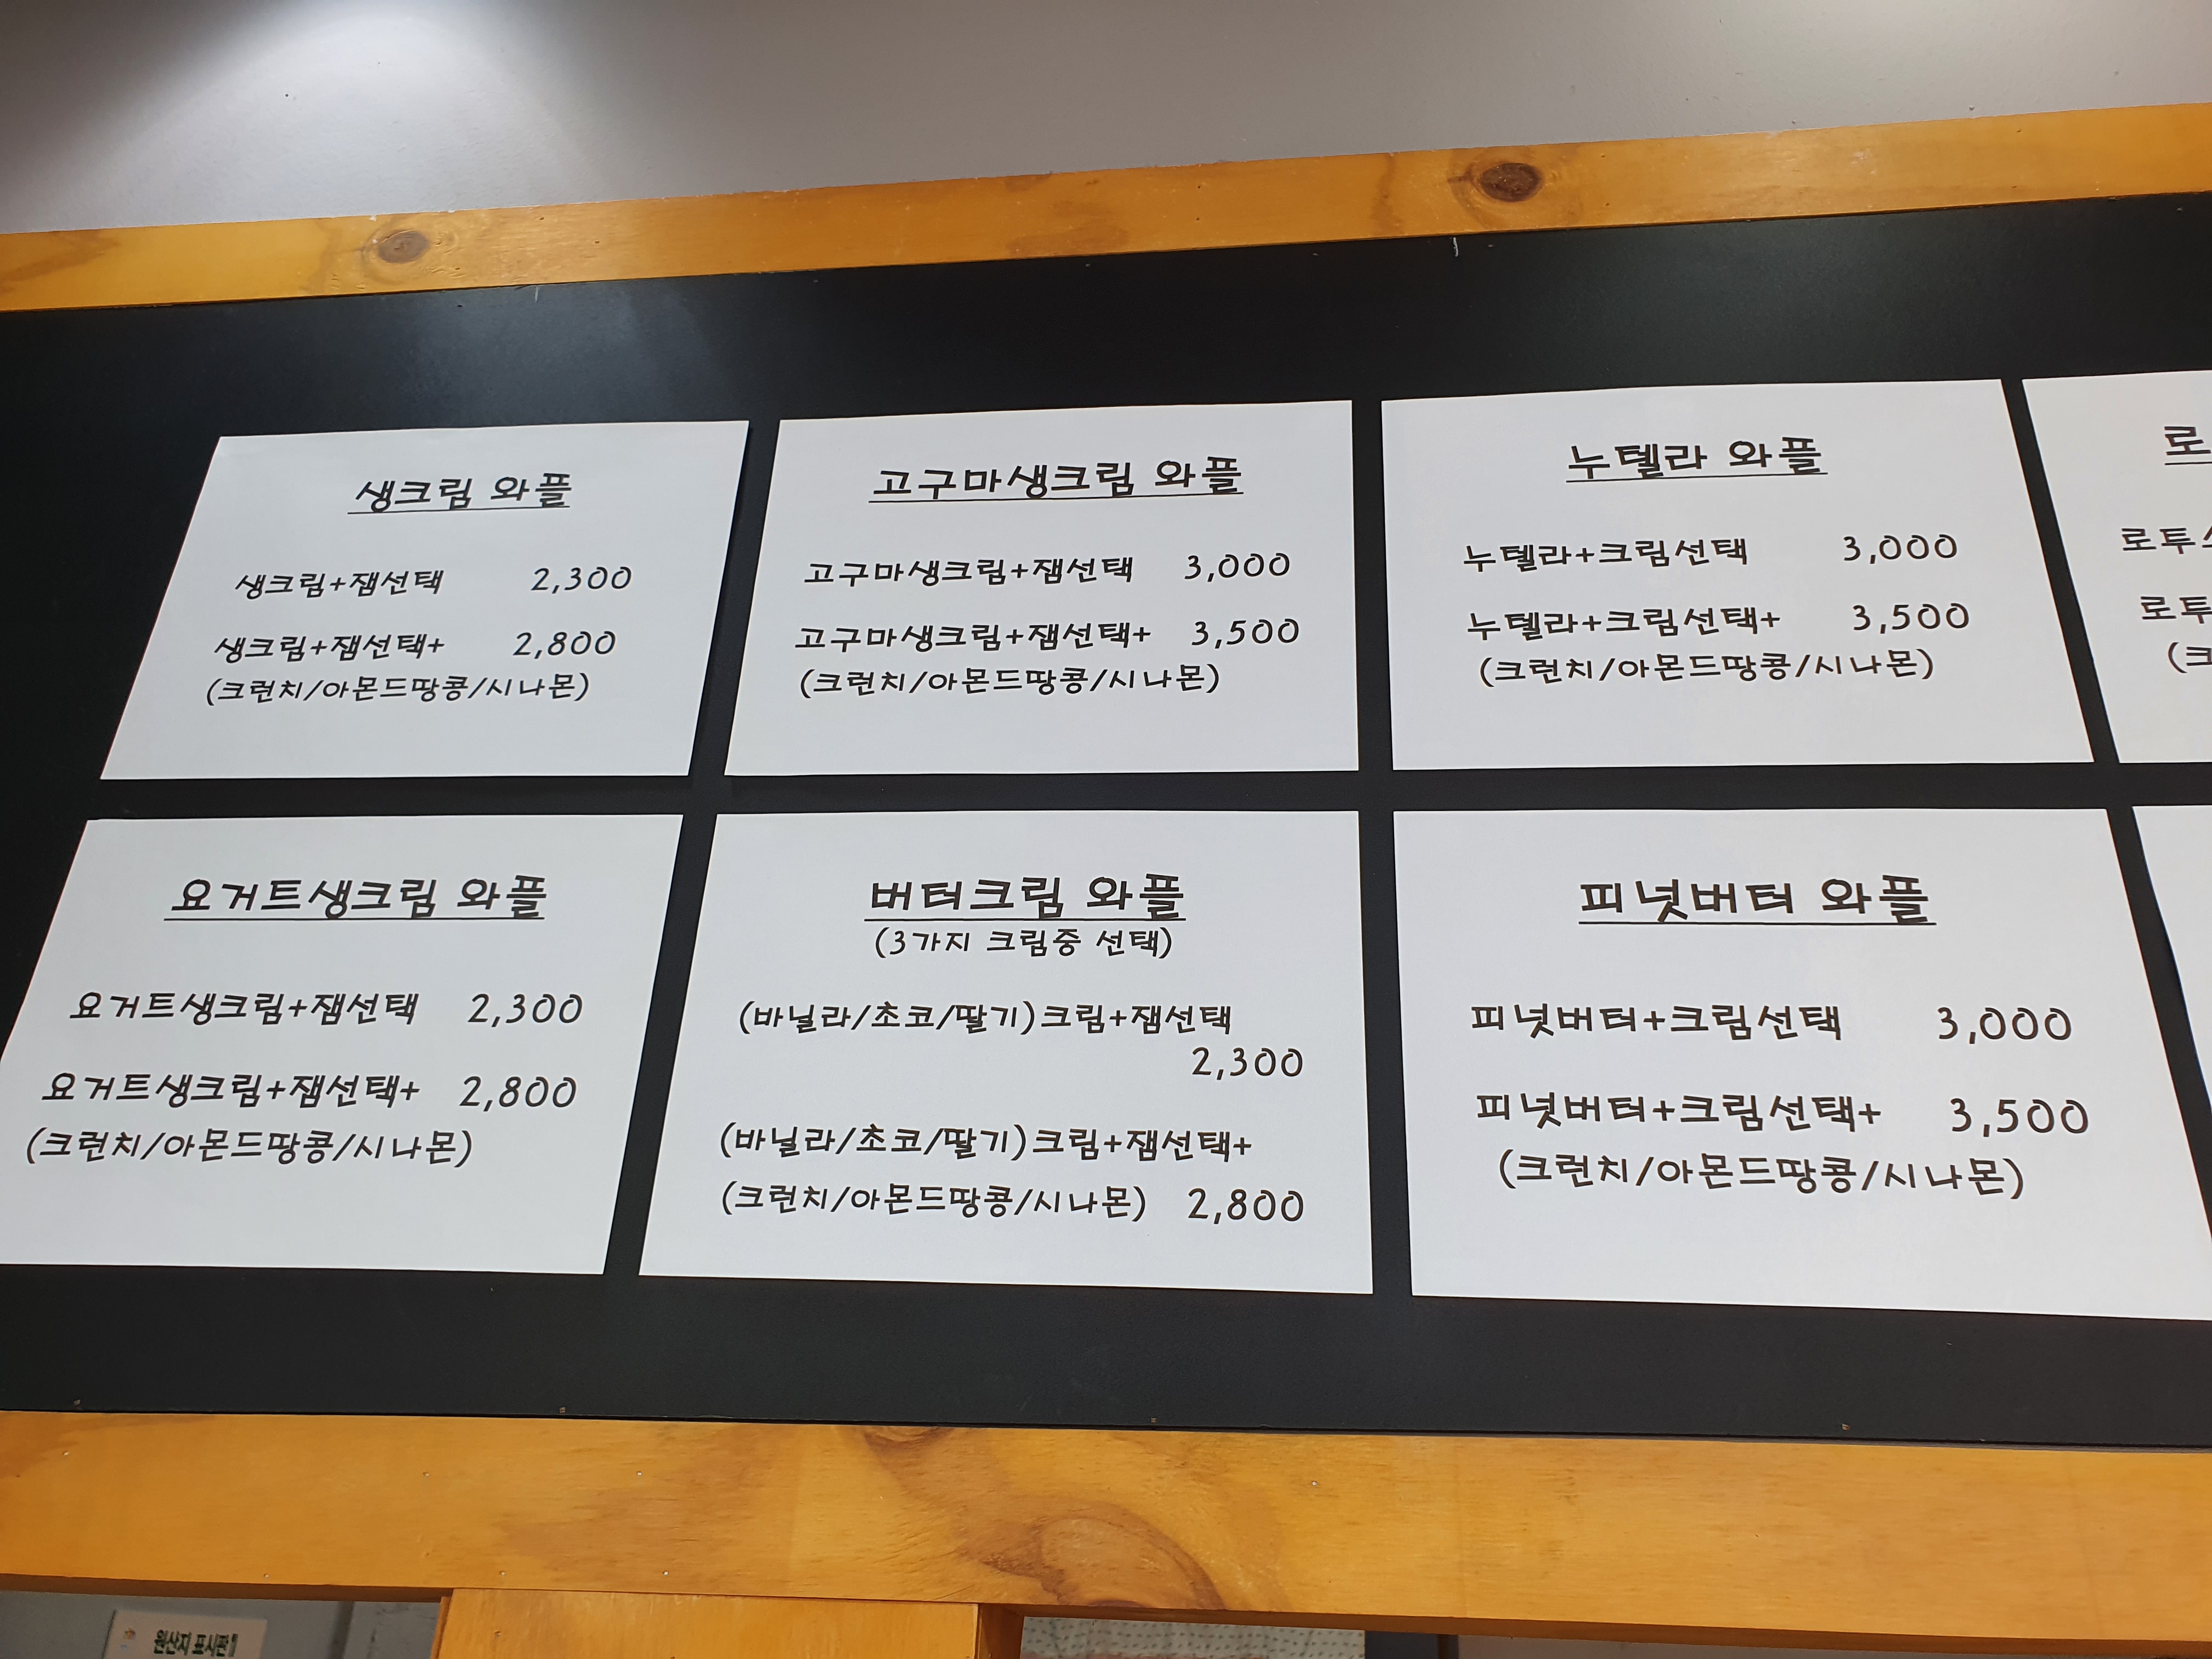 생크림 와플
생크림+잼선택 2,300
생크림+잼선택+ 2,800
(크런치/아몬드땅콩/시나몬)
고구마생크림 와플
고구마생크림+잼선택 3,000
고구마생크림+잼선택+ 3,500
(크런치/아몬드땅콩/시나몬)
누텔라 와플
누텔라+크림선택 3,000
누텔라+크림선택+ 3,500
(크런치/아몬드땅콩/시나몬)
로
로투
로투
(크
요거트생크림 와플
요거트생크림+잼선택 2,300
요거트생크림+잼선택+ 2,800
(크런치/아몬드땅콩/시나몬)
버터크림 와플
(3가지 크림중 선택)
(바닐라/초코/딸기)크림+잼선택
2,300
(바닐라/초코/딸기)크림+잼선택+
(크런치/아몬드땅콩/시나몬) 2,800
피넛버터 와플
피넛버터+크림선택 3,000
피넛버터+크림선택+ 3,500
(크런치/아몬드땅콩/시나몬)
원산지 표시판